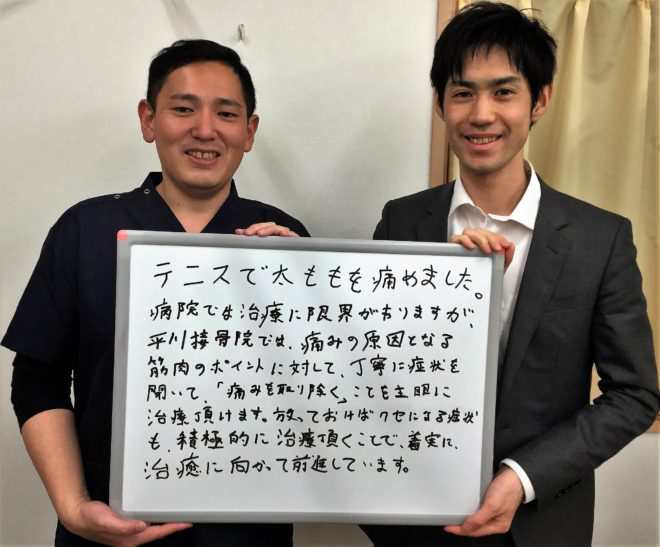 テニスで太ももを痛めました。
病院では治療に限界がありますが、
平川接骨院では、痛みの原因となる
筋肉のポイントに対して、丁寧に症状を
聞いて、「痛みを取り除く」ことを主眼に
治療頂けます。放っておけばクセになる症状
も、積極的に治療頂くことで、着実に、
治癒に向かって前進しています。